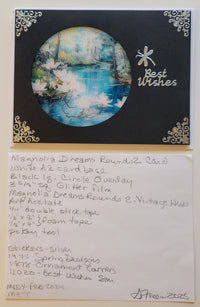 Best
Wishes
Magnolia Dreams Rounds 2 Card
White A2 card base
Black lg. Circle Overlay
3 3/4" sq. Glitter Film
Magnolia Dreams Rounds 2 - Vintage Hues
A-P Acetate
1/4" double stick tape
foam tape
pokey tool
Stickers - silver
Spring Designs
Ornament Corners
1020 - Best Wishes
2025